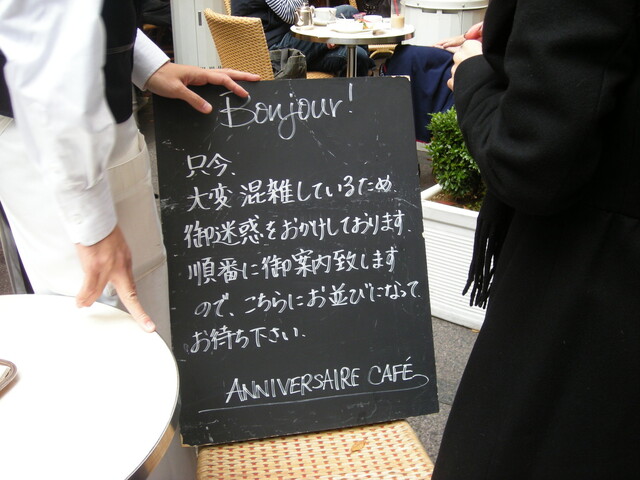 Bonjour!
只今、
大変混雑しているため、
御迷惑をおかけしております.
順番に御案内致します
ので、こちらにお並びになって、
お待ち下さい.
ANNIVERSAIRE CAFÉ